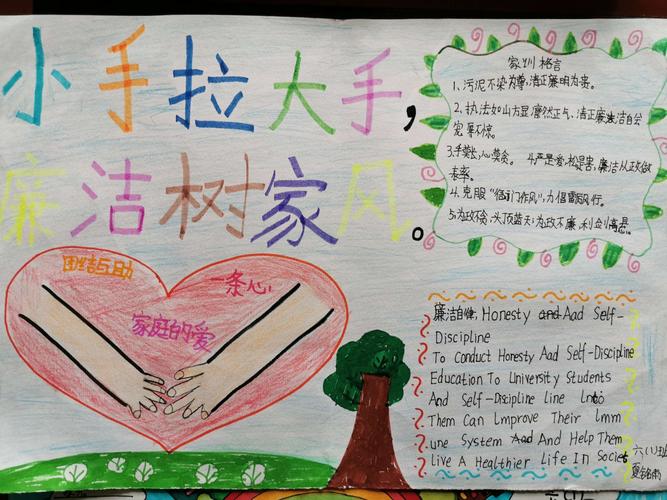 小手拉大手，
廉洁树家风。
团结互助
一条心
家庭的爱
家训格言
1、污泥不染为尊，清正廉明为害。
2、执法如山方显廉然正气、清正廉洁自会
宠辱不惊。
3.手莫长，心莫贪。 4.严是爱,松是害,廉洁从政做
表率。
4.克服“衙门作风”，力倡
5.为政不贪,头顶蓝天；为政不廉,利立
廉洁自律 Honesty and Aad Self-
Discipline
To Conduct Honesty Aad Self-Discipline
Education To University Students
And Self-Discipline Line Into
Them Can Lmprove Their Lmm
une System Aad And Help Them
Live A Healthier Life In Societ
六(1)班
夏铭